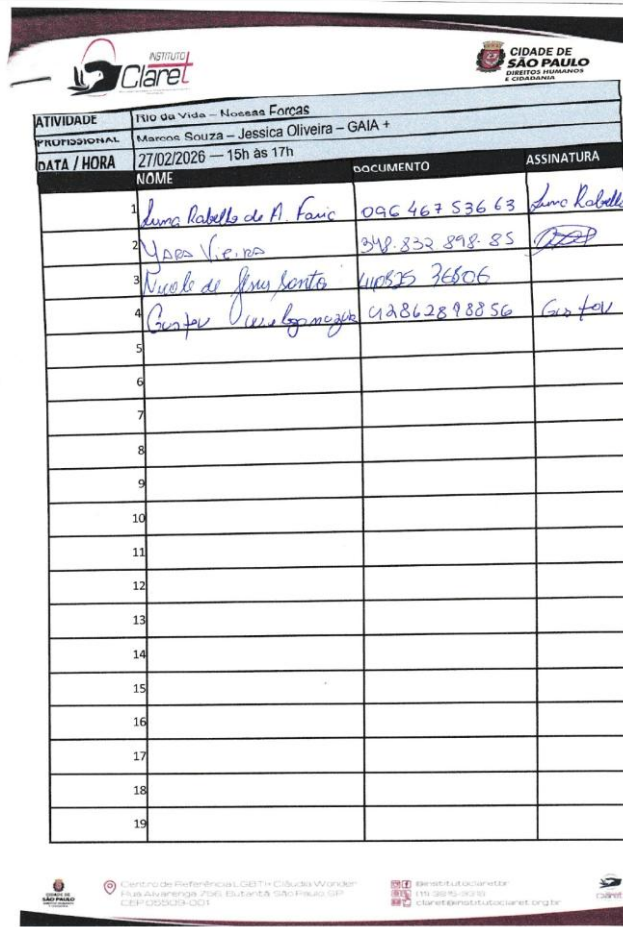 INSTITUTO
Claret
CIDADE DE
SÃO PAULO
DIREITOS HUMANOS
E CIDADANIA
ATIVIDADE Rio da Vida – Nossas Forças
PROFISSIONAL Marcos Souza – Jessica Oliveira – GAIA +
DATA / HORA 27/02/2026 — 15h às 17h
NOME DOCUMENTO ASSINATURA
1 Luma Rabello de A. Faria 096 467 536 63 Luma Rabello
2 Yara Vieira 348.832 898.85
3 Nicole de Jesus Santos 36806
4 Gustav 42862898856 Gustav
5
6
7
8
9
10
11
12
13
14
15
16
17
18
19
CIDADE DE
SÃO PAULO
Centro de Referência LGBTI+ Cláudia Wonder
Rua Alvarenga 756, Butantã, São Paulo, SP
CEP 05509-001
@institutoclaretbr
claret@institutoclaret.org.br
Claret